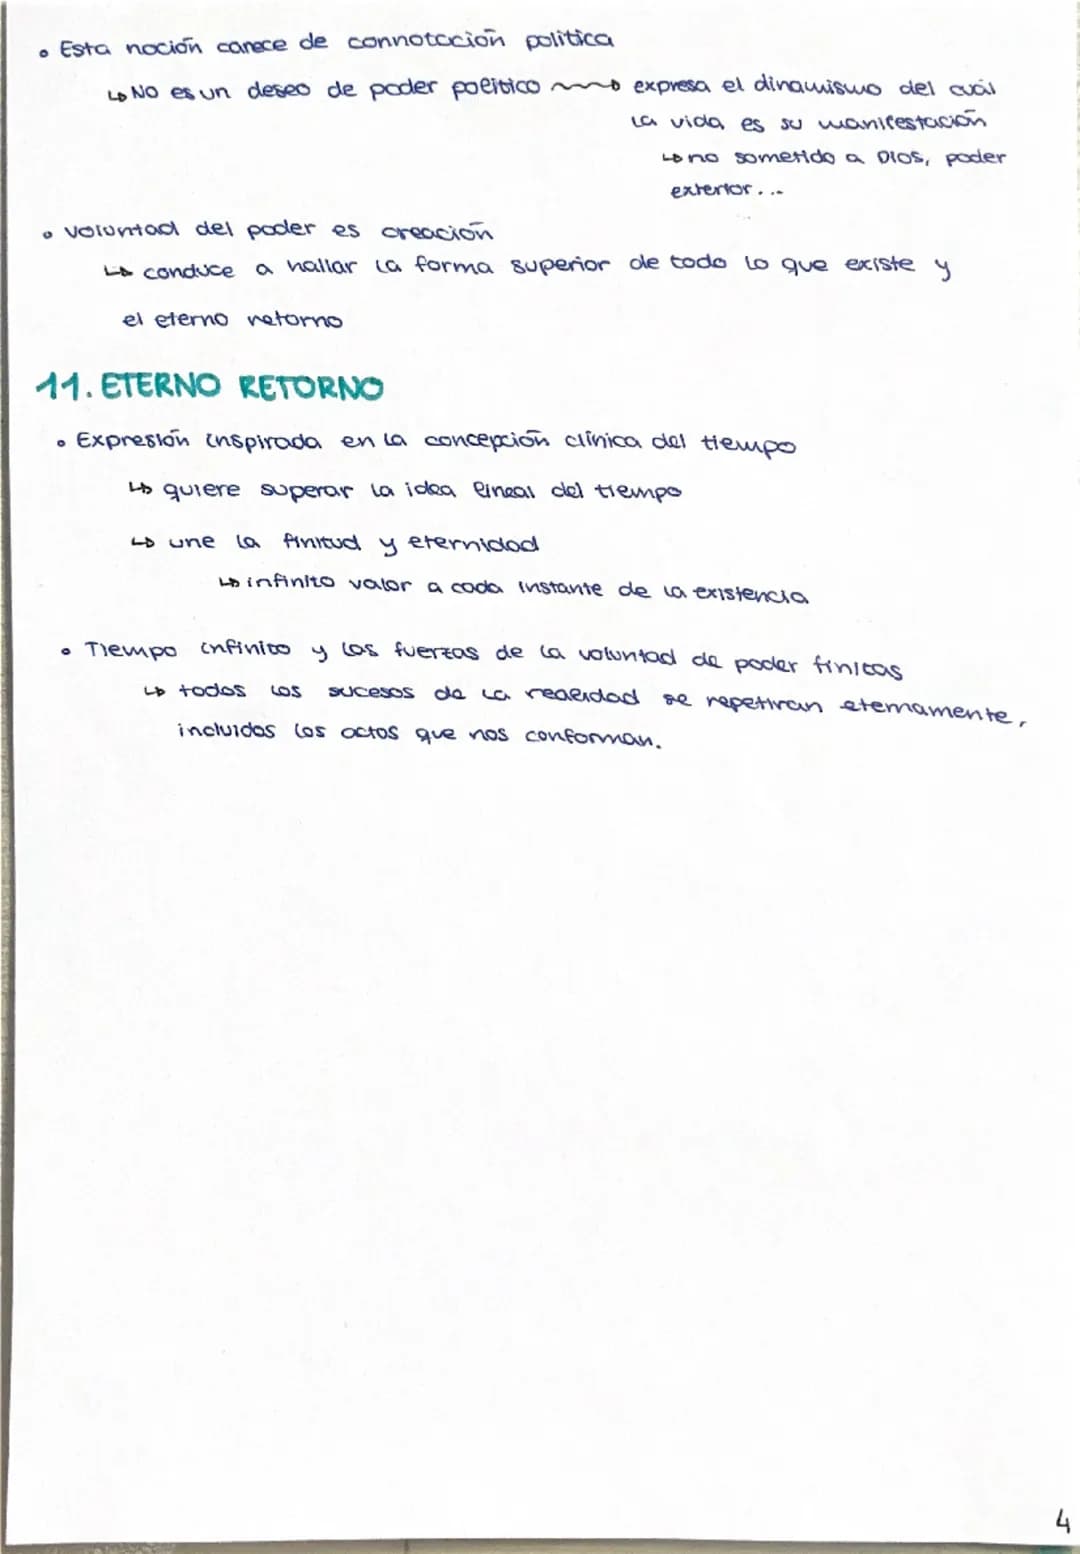 • Esta noción carece de connotación política
↳ NO es un deseo de poder político ⟿ expresa el dinamismo del cuál
la vida es su manifestación
↳ no sometido a Dios, poder
exterior...
• Voluntad del poder es creación
↳ conduce a hallar la forma superior de todo lo que existe y
el eterno retorno
11. ETERNO RETORNO
• Expresión inspirada en la concepción clínica del tiempo
↳ quiere superar la idea lineal del tiempo
↳ une la finitud y eternidad
↳ infinito valor a cada instante de la existencia
• Tiempo infinito y las fuerzas de la voluntad de poder finitas
↳ todos los sucesos de la realidad se repetiran eternamente,
incluidos los actos que nos conforman.
4